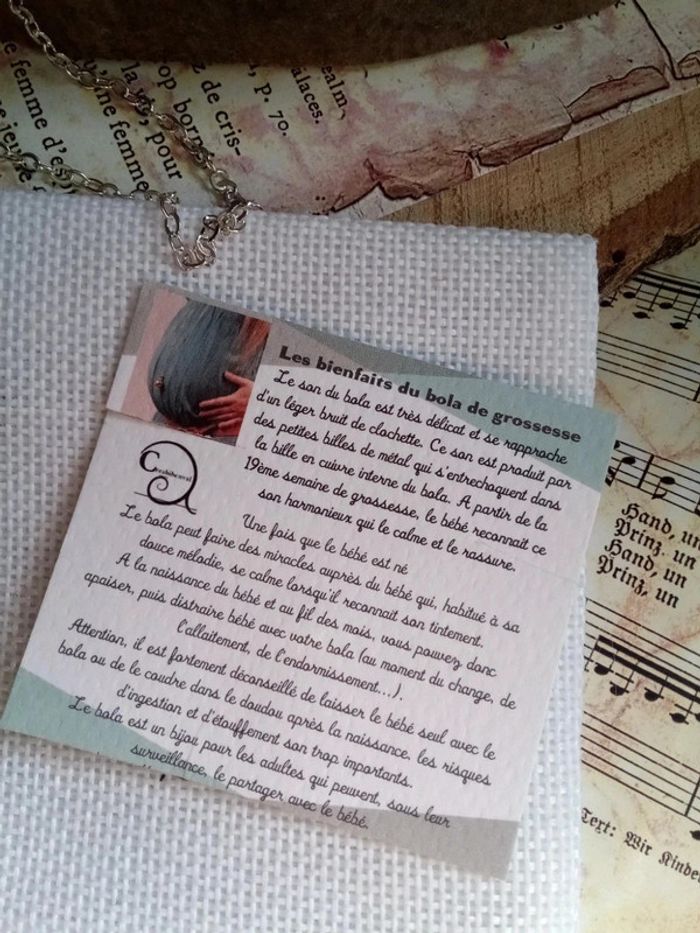 femme d'es
jeune
une femme
la vie, pour
op born
z de cris-
, p. 70.
ealm
alaces.
Les bienfaits du bola de grossesse
Le son du bola est très délicat et se rapproche
d'un léger bruit de clochette. Ce son est produit par
des petites billes de métal qui s'entrechoquent dans
la bille en cuivre interne du bola. A partir de la
19ème semaine de grossesse, le bébé reconnait ce
son harmonieux qui le calme et le rassure.
Une fois que le bébé est né
Le bola peut faire des miracles auprès du bébé qui, habitué à sa
douce mélodie, se calme lorsqu'il reconnait son tintement.
A la naissance du bébé et au fil des mois, vous pouvez donc
apaiser, puis distraire bébé avec votre bola (au moment du change, de
l'allaitement, de l'endormissement...).
Attention, il est fortement déconseillé de laisser le bébé seul avec le
bola ou de le coudre dans le doudou après la naissance, les risques
d'ingestion et d'étouffement son trop importants.
Le bola est un bijou pour les adultes qui peuvent, sous leur
surveillance, le partager avec le bébé.
Hand, un
Prinz, un
Hand, un
Prinz, un
Text: Wir Kinder